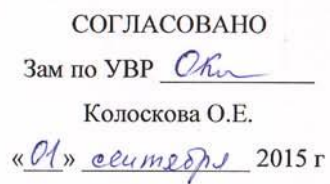 СОГЛАСОВАНО
Зам по УВР
Колоскова О.Е.
«01» сентября 2015 г